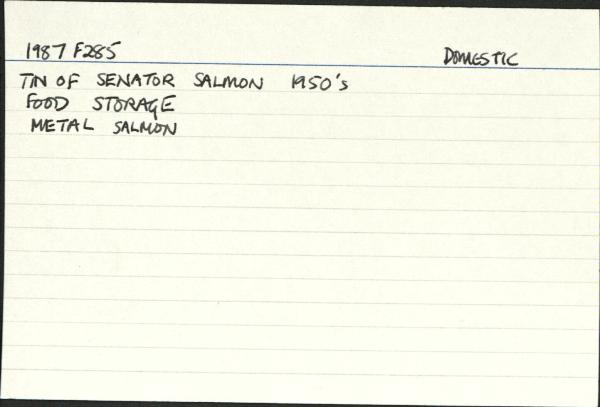 1987 F285 DOMESTIC
TIN OF SENATOR SALMON 1950's
FOOD STORAGE
METAL SALMON